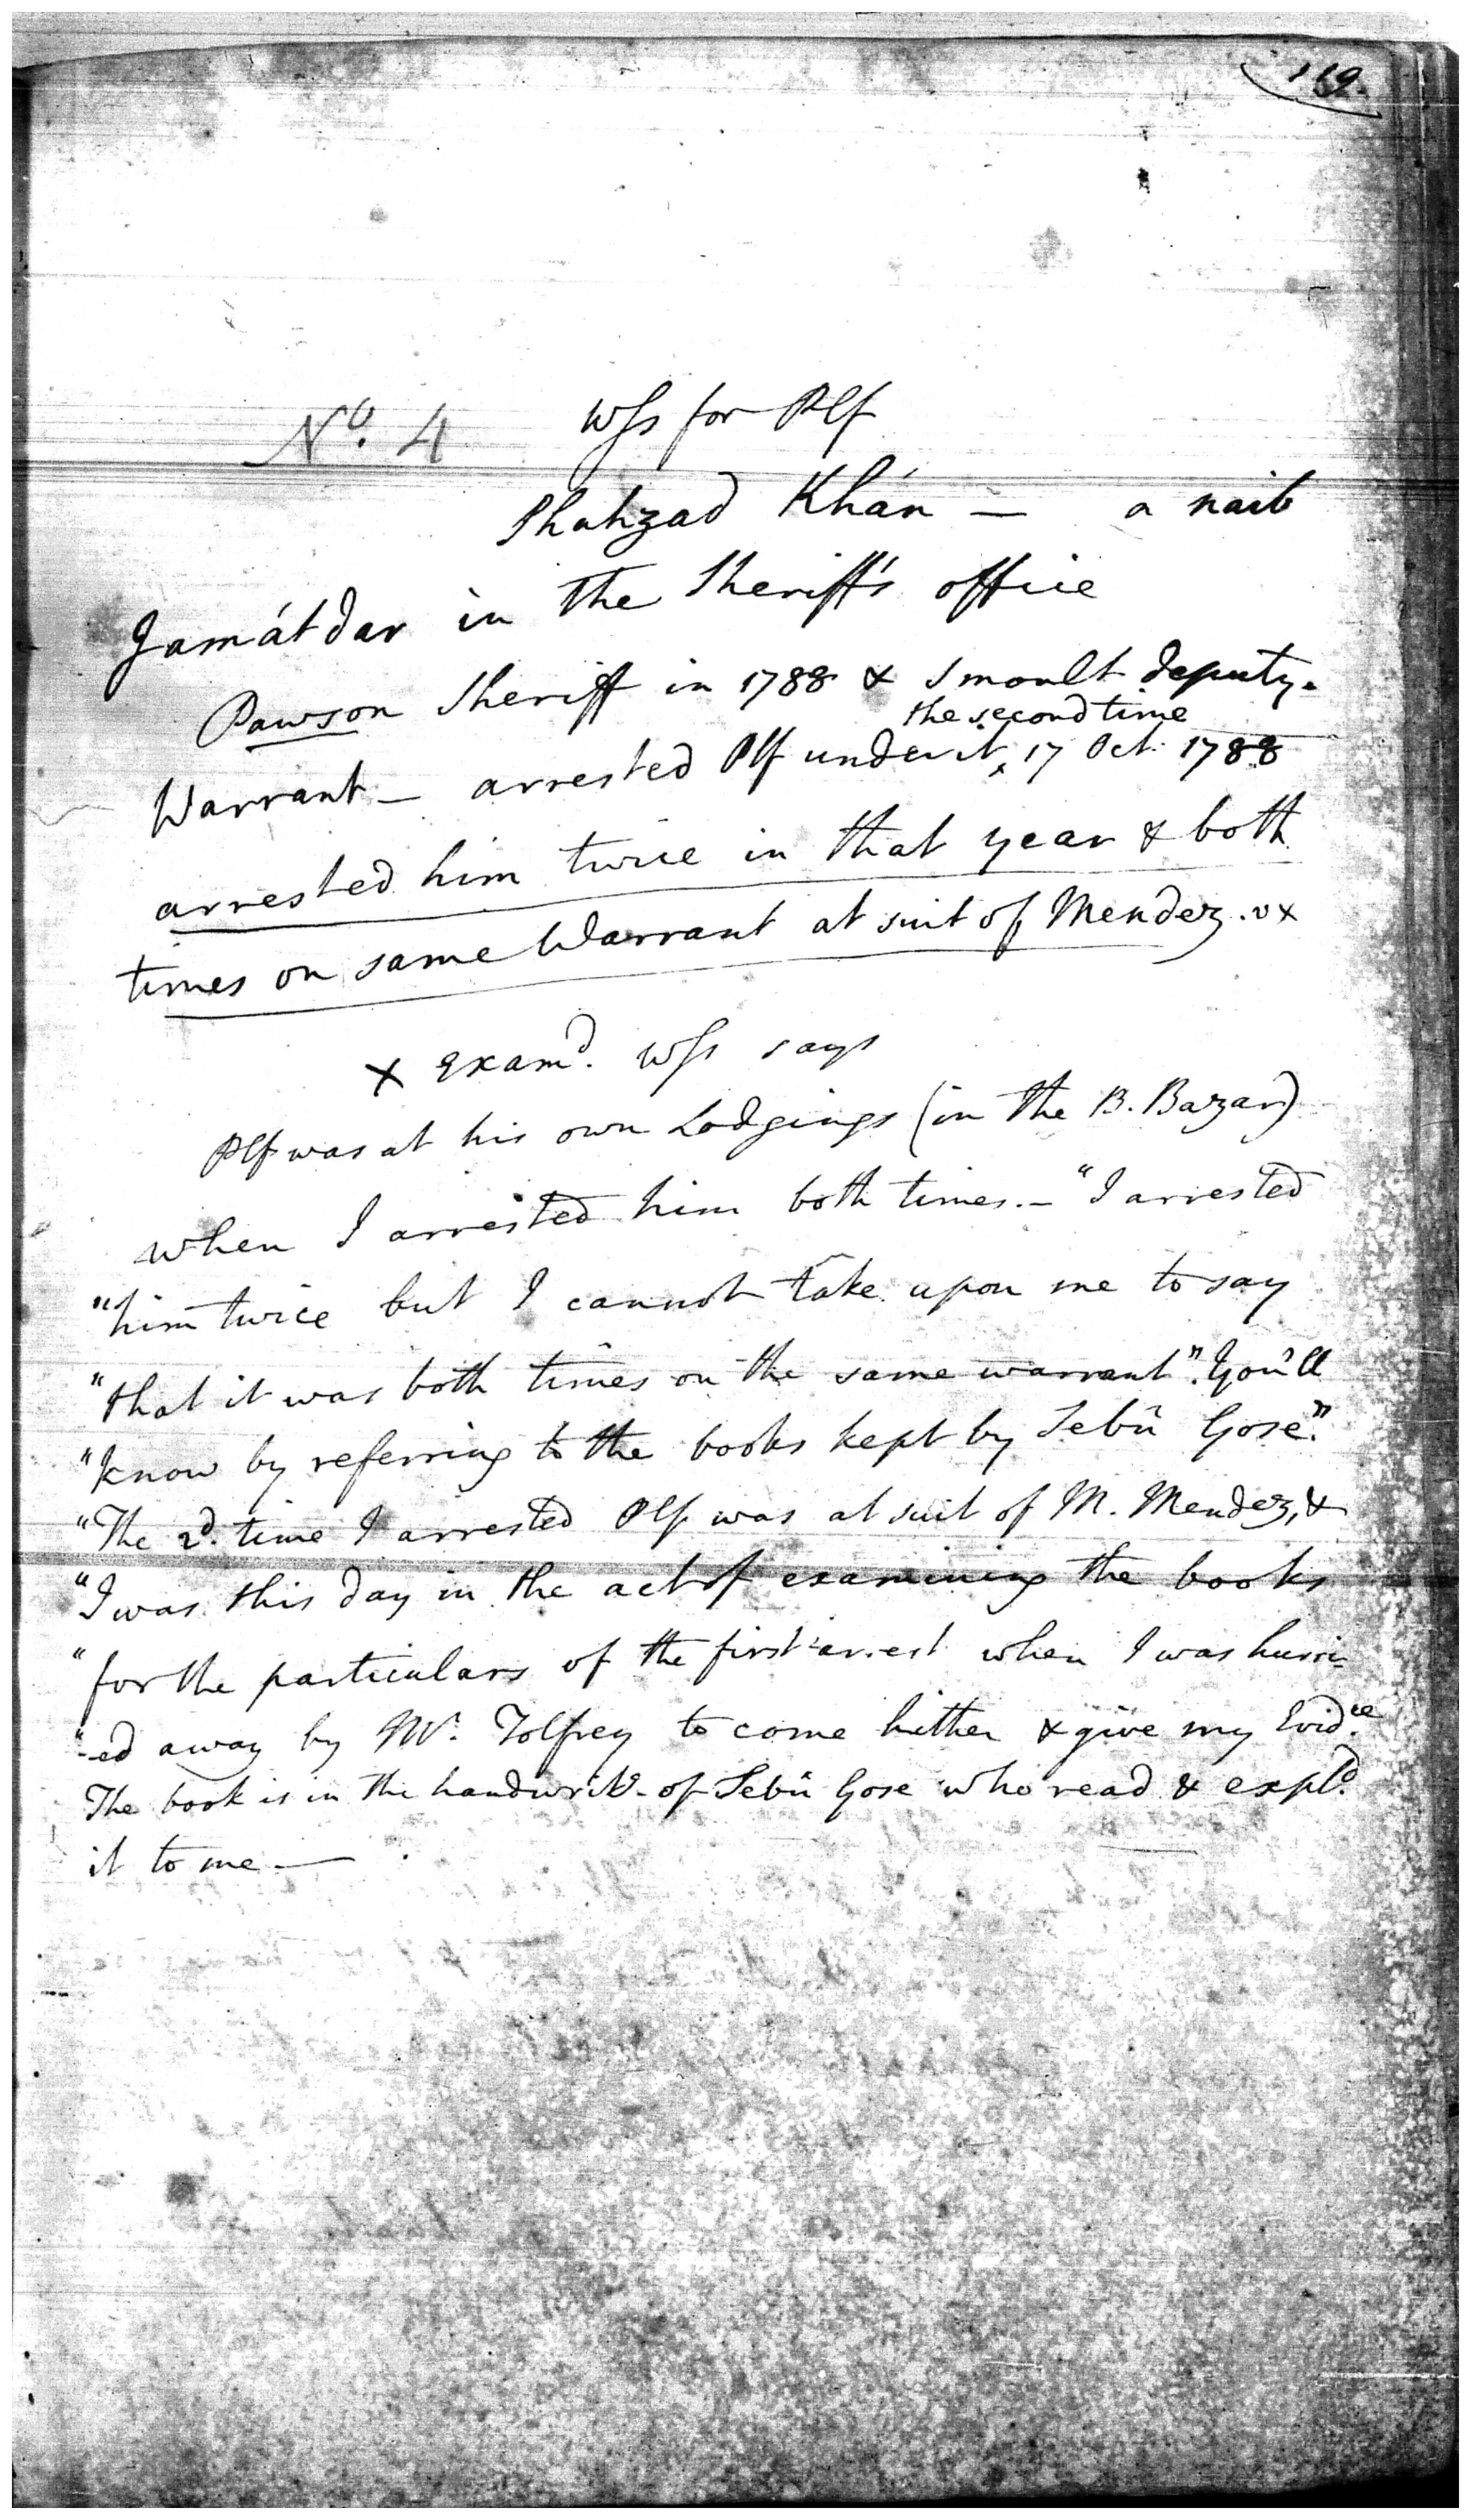 119.
No. 4 Wss for Plf
Shahzad Khán — a naib
Jamátdar in the Sheriff's office
Pawson Sheriff in 1788 & Smoult deputy.
the second time
Warrant — arrested Plf under it, 17 Oct. 1788
arrested him twice in that year & both
times on same Warrant at suit of Mendez. vx
X Examd. Wss says
Plf was at his own Lodgings (in the B. Bazar)
when I arrested him both times. — "I arrested
"him twice but I cannot take upon me to say
"that it was both times on the same warrant". You'll
"know by referring to the books kept by Sebû Gose."
"The 2d. time I arrested Plf was at suit of M. Mendez, &
"I was this day in the act of examining the books
"for the particulars of the first arrest when I was hurri-
"-ed away by Mr. Tolfrey to come hither & give my Evidce.
The book is in the handwritg. of Sebû Gose who read & expld.
it to me —